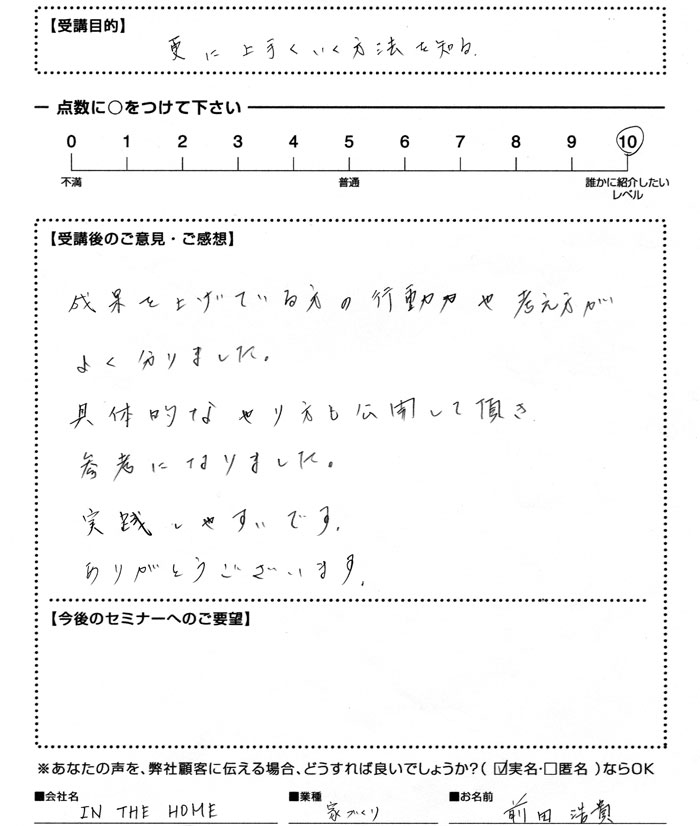 【受講目的】
更に上手くいく方法を知る.
点数に○をつけて下さい
0 1 2 3 4 5 6 7 8 9 10
不満 普通 誰かに紹介したい
レベル
【受講後のご意見・ご感想】
成果を上げている方の行動力や考え方が
よく分りました。
具体的なやり方も公開して頂き
参考になりました。
実践しやすいです.
ありがとうございます.
【今後のセミナーへのご要望】
※あなたの声を、弊社顧客に伝える場合、どうすれば良いでしょうか?( ☑実名・□匿名 )ならOK
■会社名 IN THE HOME ■業種 家づくり ■お名前 前田浩貴